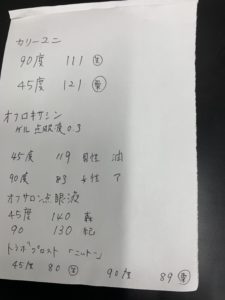 カリーユニ
90度 111 生
45度 121 奮
オフロキサシン
ゲル点眼液0.3
45度 119 男性 油
90度 83 女性 了
オフサロン点眼液
45度 140 轟
90 130 紀
トラボプロスト「ニットー」
45度 80 生 90度 89 奮